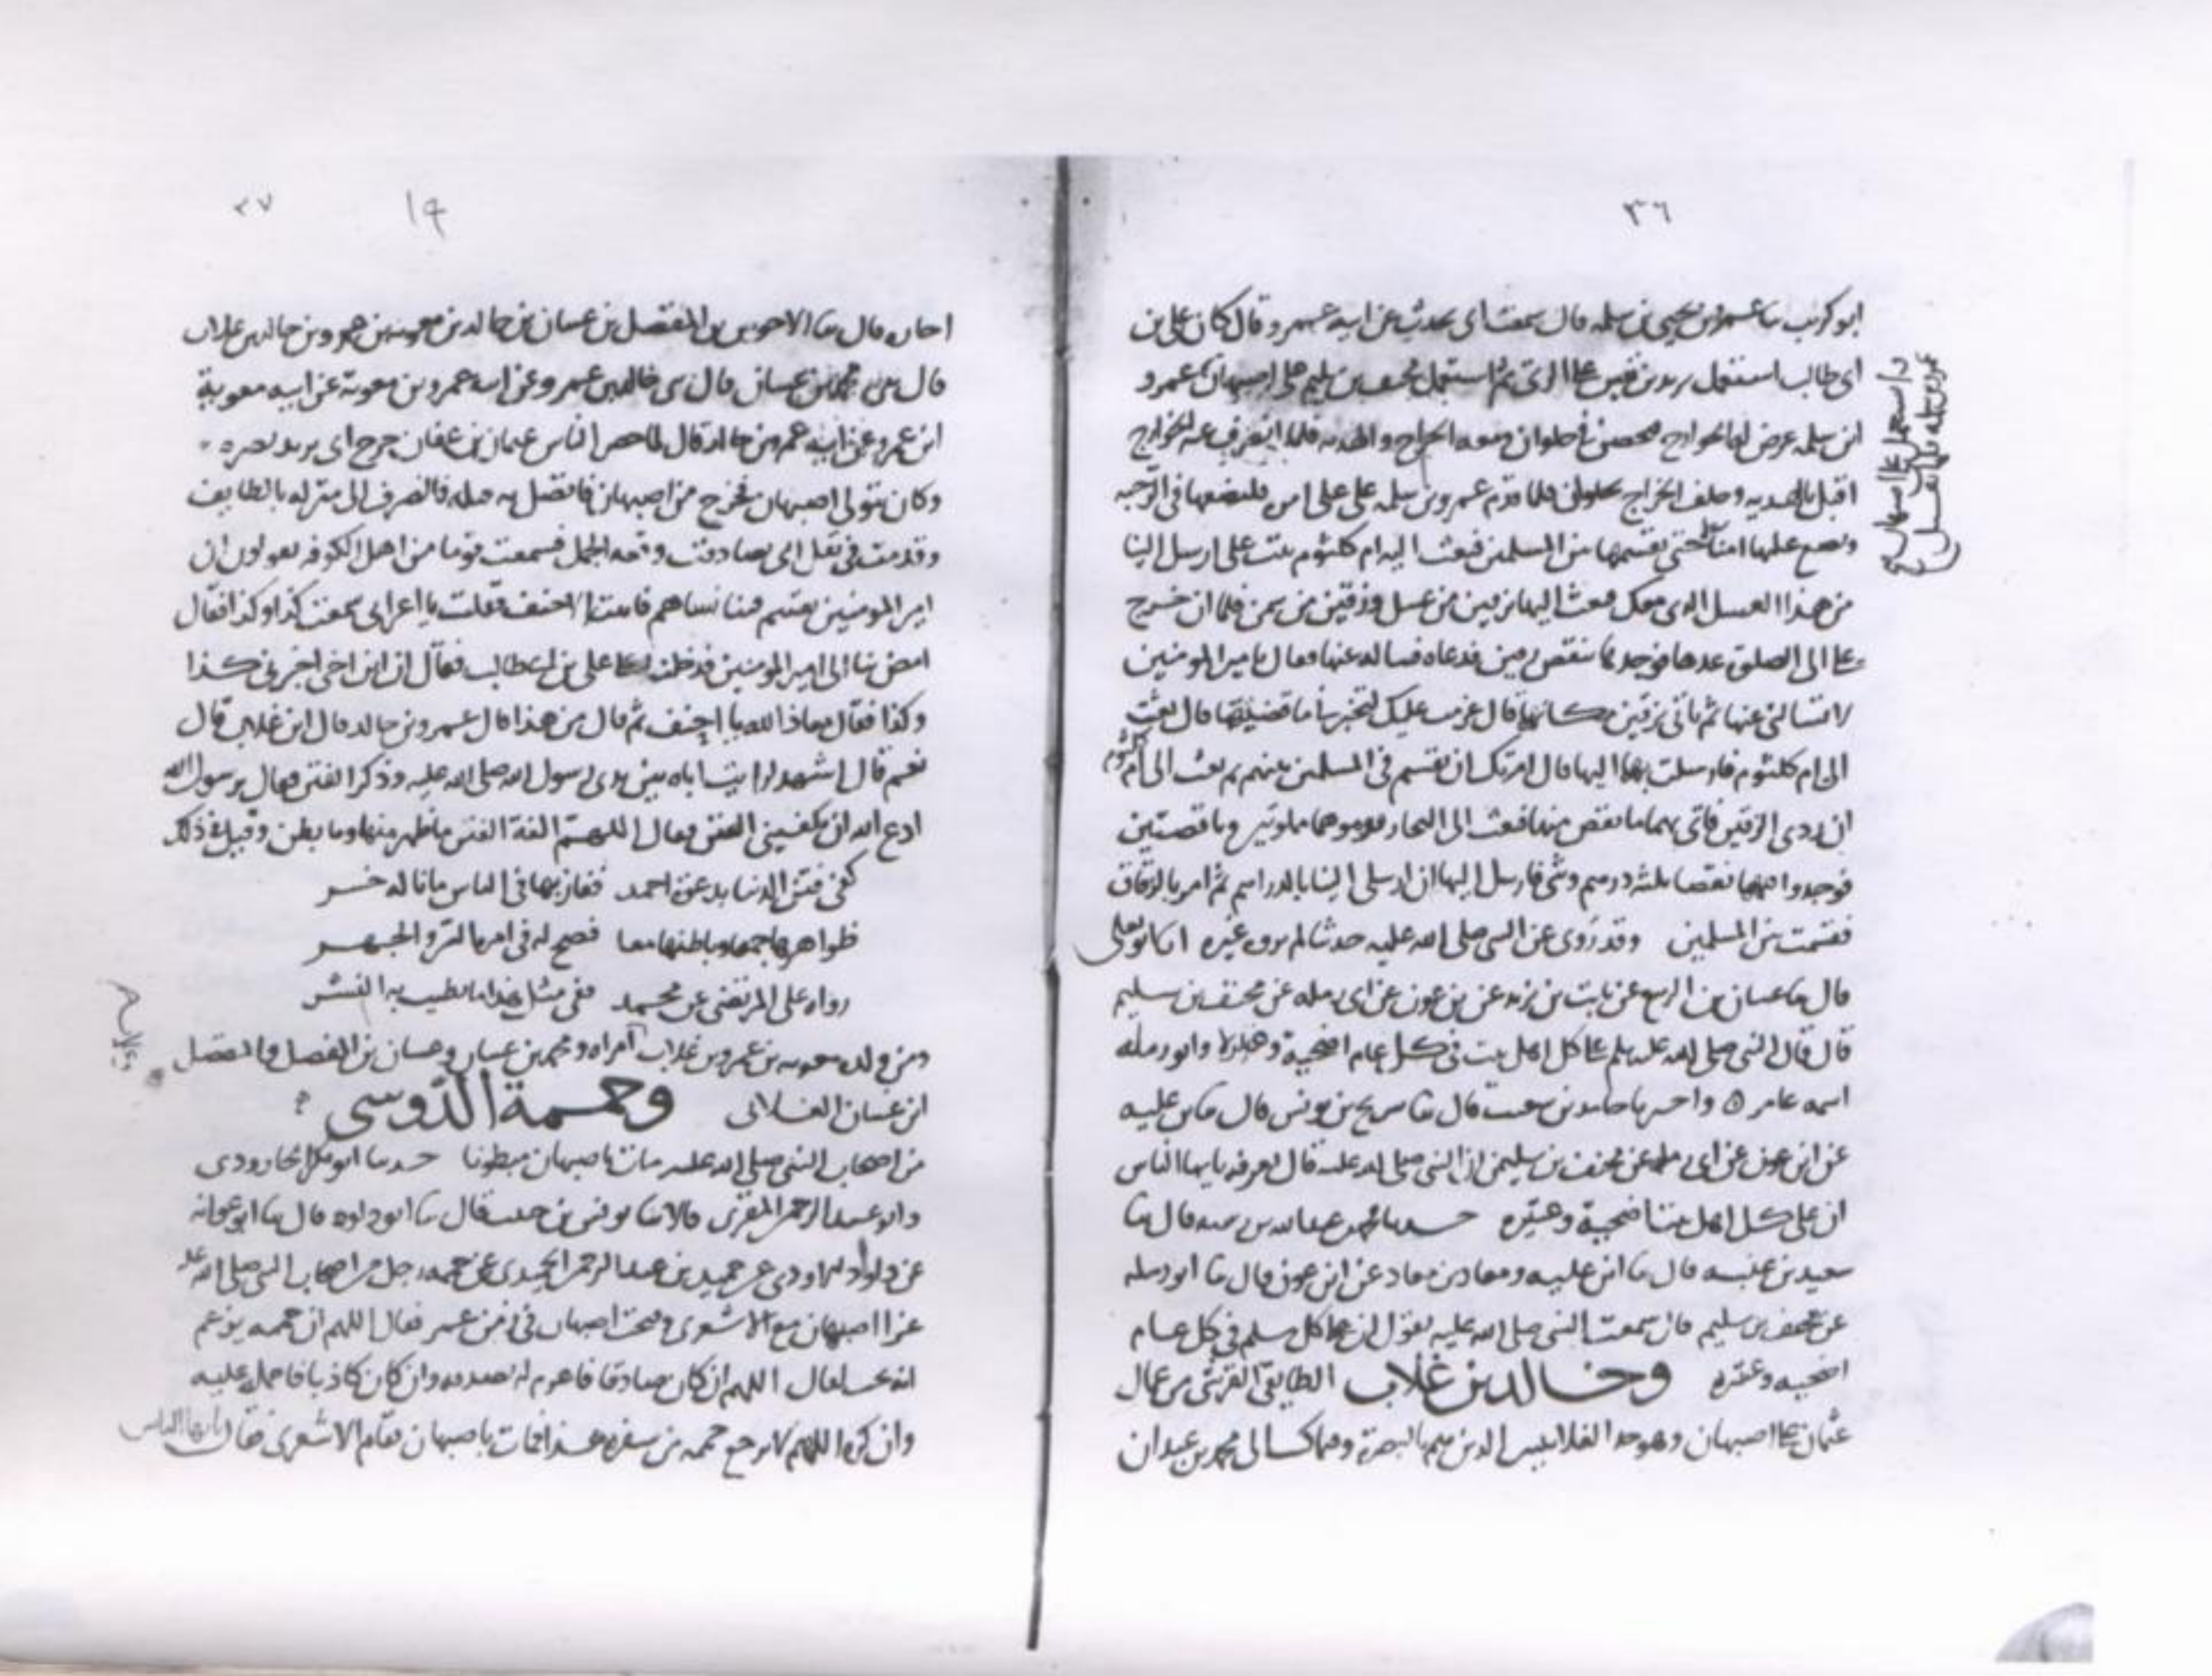 ٣٦
ابو كريب ثنا عمرو بن يحيى بن سلمه قال سمعت ابى يحدث عن ابيه عمرو قال كان على بن
ابى طالب استعمل يزيد بن قيس على الرى ثم استعمل مخنف بن سليم على اصبهان عمرو
ابن سلمه عرض له الخوارج فتحصن حلوان ومعه الخراج والهديه فلما انصرف عنه الخوارج
اقبل بالهديه وخلف الخراج بحلوان فلما قدم عمرو بن سلمه على على امره فليضعها فى الرحبه
ويضع عليها امناء حتى يقسمها بين المسلمين فبعث اليه ام كلثوم بنت على ارسل الينا
من هذا العسل الذى معك فبعث اليها بزقين من عسل وزقين من سمن فلما ان خرج
على الى الصلوة عدها فوجدها تنقص زقين فدعاه فساله عنها فقال يا امير المومنين
لا تسالنى عنها ثم ناتى بزقين مكانها قال عزمت عليك لتخبرنى ما قضيتها قال بعثت
الى ام كلثوم فارسلت بهما اليها قال امرتك ان تقسم فى المسلمين بينهم ثم بعث الى ام كلثوم
ان ردى الزقين فاتى بهما ما نقص منها فبعث الى التجار قوموهما مملوتين وناقصتين
فوجدوا فيهما نقصا ثلثه درهم وشى فارسل اليها ان ارسلى الينا بالدراهم ثم امر بالزقاق
فقسمت بين المسلمين وقد روى عن النبى صلى الله عليه حدثنا لم يرو غيره ابو يعلى
قال ثنا غسان بن الربيع عن ثابت بن يزيد عن بن عون عن ابى رمله عن مخنف بن سليم
قال قال النبى صلى الله عليه وسلم على كل اهل بيت فى كل عام اضحية وعتيرة وابو رمله
اسمه عامر ٥ واخبرنا حامد بن شعيب قال ثنا سريج بن يونس قال ثنا بن عليه
عن ابن عون عن ابى رمله عن مخنف بن سليم ان النبى صلى الله عليه قال بعرفه يايها الناس
ان على كل اهل بيت اضحية وعتيره حدثنا محمد بن عبد الله بن رسته قال ثنا
سعيد بن عنبسه قال ثنا ابن عليه ومعاذ بن معاذ عن ابن عون قال ثنا ابو رمله
عن مخنف بن سليم قال سمعت النبى صلى الله عليه يقول ان على كل مسلم فى كل عام
اضحيه وعتيره وخالد بن غلاب الطايفى القرشى من عمال
عثمان على اصبهان وهو جد الغلابيين الذين هم بالبصرة ومما كتب الى محمد بن عبدان
٣٧
١٩
قال ثنا الاحوص بن المفضل بن غسان بن خالد بن معوية بن عمرو بن خالد بن غلاب
قال محمد بن غسان قال خالد بن عمرو عن ابيه عمرو بن معوية عن ابيه معوية
ابن عمرو عن ابيه عمرو بن خالد قال لما حصر الناس عثمان بن عفان خرج ابى يريد نصره
وكان متولى اصبهان فخرج من اصبهان فاتصل به قتله فانصرف الى منزله بالطايف
وقدمت فى ثقل ابى فصادفت وقعه الجمل فسمعت قوما من اهل الكوفه يقولون ان
امير المومنين يقسم فينا نساهم فاتيت الاحنف فقلت يا سمعت كذا وكذا فقال
امض بنا الى امير المومنين فدخلنا على على بن ابى طالب فقال ان ابن اخى اخبرنى كذا
وكذا فقال معاذ الله يا احنف ثم قال من هذا قال عمرو بن خالد قال ابن غلاب قال
نعم قال اشهد لرايت اباه بين يدى رسول الله صلى الله عليه وذكر الفتن فقال يرسول الله
ادع الله ان يكفينى الفتن فقال اللهم اكفه الفتن ما ظهر منها وما بطن وقيل فى ذلك
كفى فتن الدنيا بدعوة احمد ففاز بها فى الناس ما ناله خسر
ظواهرها جمعا وباطنها معا فصح له فى امرها السر والجهر
رواه على المرتضى عن محمد ففى مثل هذا ما يطيب به النشر
ومن ولده معويه بن عمرو بن غلاب ومحمد بن غسان وغسان بن المفضل والمفضل
ابن غسان الغلابى وحممة الدوسى
من اصحاب النبى صلى الله عليه مات باصبهان مبطونا حدثنا ابو بكر الجارودى
وابو عبد الرحمن المقرى قالا ثنا يونس بن حبيب قال ثنا ابو داود قال ثنا ابو عوانه
عن داود الاودى عن حميد بن عبد الرحمن الحميرى عن حممه رجل من اصحاب النبى صلى الله عليه
غزا اصبهان مع الاشعرى وفتحت اصبهان فى زمن عمر فقال اللهم ان حممه يزعم
انه يحب لقاك اللهم ان كان صادقا فاعزم له بصدقه وان كان كاذبا فاحمله عليه
وان كره اللهم لا ترجع حممه من سفره هذا فمات باصبهان فقام الاشعرى فقال يايها الناس